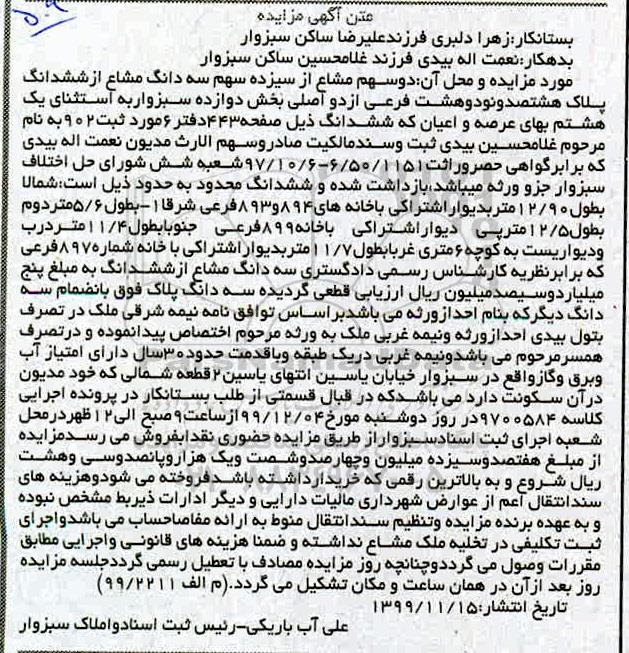 متن آگهی مزایده
بستانکار:زهرا دلبری فرزندعلیرضا ساکن سبزوار
بدهکار:نعمت اله بیدی فرزند غلامحسین ساکن سبزوار
مورد مزایده و محل آن:دوسهم مشاع از سیزده سهم سه دانگ مشاع ازششدانگ
پلاک هشتصدونودوهشت فرعی ازدو اصلی بخش دوازده سبزواربه استثنای یک
هشتم بهای عرصه و اعیان که ششدانگ ذیل صفحه۴۴۳دفتر۶مورد ثبت۹۰۲به نام
مرحوم غلامحسین بیدی ثبت وسندمالکیت صادروسهم الارث مدیون نعمت اله بیدی
که برابرگواهی حصروراثت۶/۵۰/۱۱۵۱-۹۷/۱۰/۶شعبه شش شورای حل اختلاف
سبزوار جزو ورثه میباشد،بازداشت شده و ششدانگ محدود به حدود ذیل است:شمالا
بطول۱۲/۹۰متربدیواراشتراکی باخانه های۸۹۴و۸۹۳فرعی شرقا۱-بطول۵/۶متردوم
بطول۱۲/۵مترپی دیواراشتراکی باخانه۸۹۹فرعی جنوبابطول۱۱/۴متردرب
ودیواریست به کوچه۶متری غربابطول۱۱/۷متربدیواراشتراکی با خانه شماره۸۹۷فرعی
که برابرنظریه کارشناس رسمی دادگستری سه دانگ مشاع ازششدانگ به مبلغ پنج
میلیاردوسیصدمیلیون ریال ارزیابی قطعی گردیده سه دانگ پلاک فوق بانضمام سه
دانگ دیگرکه بنام احدازورثه می باشدبراساس توافق نامه نیمه شرقی ملک در تصرف
بتول بیدی احدازورثه ونیمه غربی ملک به ورثه مرحوم اختصاص پیدانموده و درتصرف
همسرمرحوم می باشدونیمه غربی دریک طبقه وباقدمت حدود۳۰سال دارای امتیاز آب
وبرق وگازواقع در سبزوار خیابان یاسین انتهای یاسین۲قطعه شمالی که خود مدیون
درآن سکونت دارد می باشدکه در قبال قسمتی از طلب بستانکار در پرونده اجرایی
کلاسه ۹۷۰۰۵۸۴در روز دوشنبه مورخ۹۹/۱۲/۰۴ازساعت۹صبح الی۱۲ظهردرمحل
شعبه اجرای ثبت اسنادسبزواراز طریق مزایده حضوری نقدابفروش می رسدمزایده
از مبلغ هفتصدوسیزده میلیون وچهارصدوشصت ویک هزاروپانصدوسی وهشت
ریال شروع و به بالاترین رقمی که خریدارداشته باشدفروخته می شودوهزینه های
سندانتقال اعم از عوارض شهرداری مالیات دارایی و دیگر ادارات ذیربط مشخص نبوده
و به عهده برنده مزایده وتنظیم سندانتقال منوط به ارائه مفاصاحساب می باشدواجرای
ثبت تکلیفی در تخلیه ملک مشاع نداشته و ضمنا هزینه های قانونی واجرایی مطابق
مقررات وصول می گرددوچنانچه روز مزایده مصادف با تعطیل رسمی گرددجلسه مزایده
روز بعد ازآن در همان ساعت و مکان تشکیل می گردد.(م الف ۹۹/۲۲۱۱)
تاریخ انتشار:۱۳۹۹/۱۱/۱۵
علی آب باریکی-رئیس ثبت اسنادواملاک سبزوار